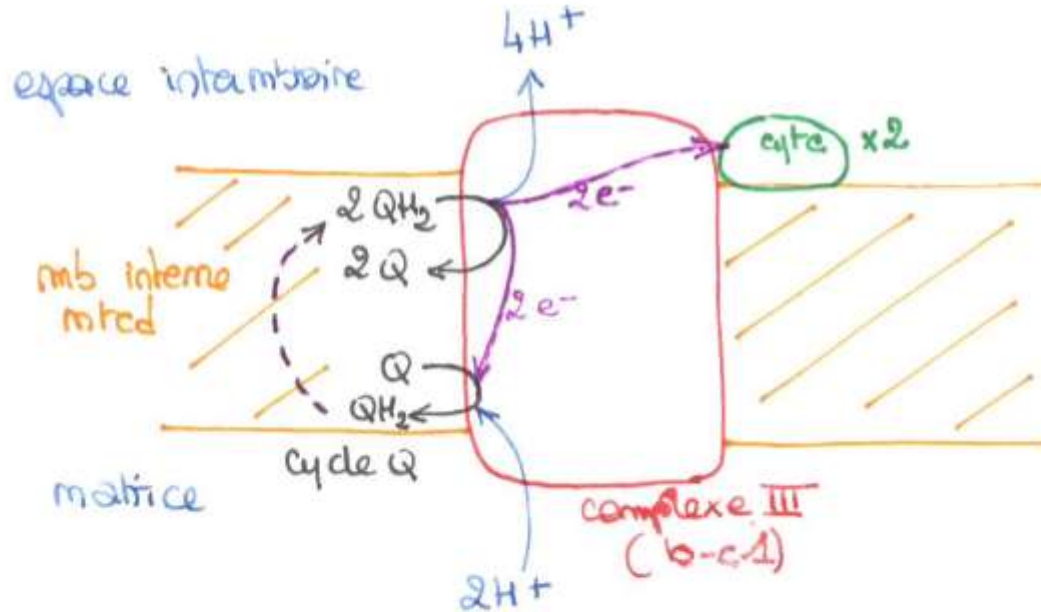 4H+
espace intermbraire
cytc x2
2e-
2QH2
2Q
mb interne
mtcd
2e-
Q
QH2
cycle Q
matrice
complexe III
(b-c1)
2H+